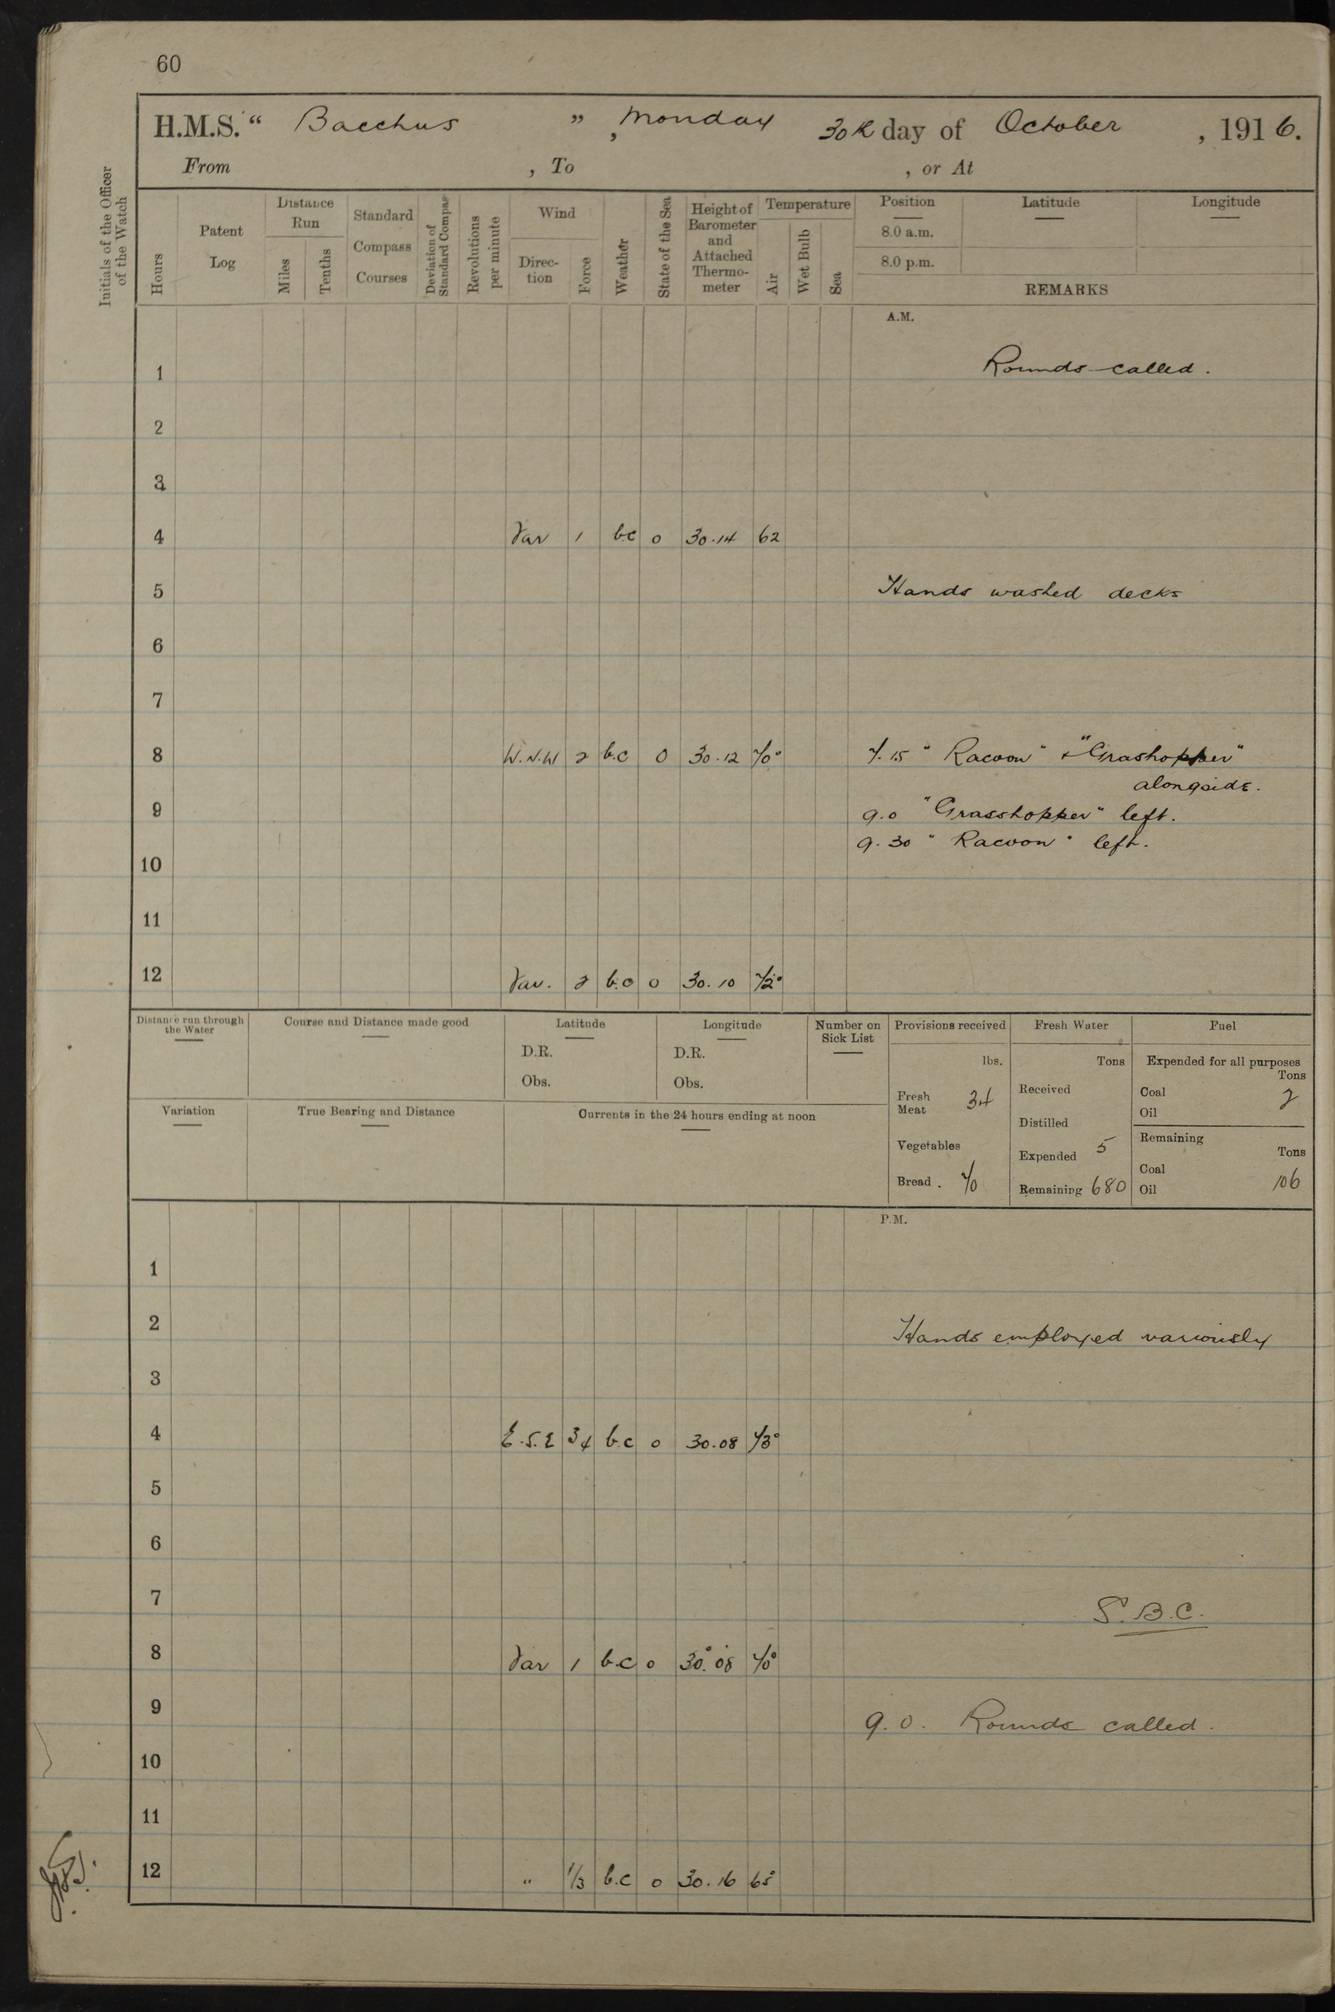 60
H.M.S. “ Bacchus ” , Monday 30th day of October , 1916.
From , To , or At
Initials of the Officer of the Watch
Hours
Patent Log
Distance Run
Miles
Tenths
Standard Compass Courses
Deviation of Standard Compass
Revolutions per minute
Wind
Direction
Force
Weather
State of the Sea
Height of Barometer and Attached Thermometer
Temperature
Air
Wet Bulb
Sea
Position Latitude Longitude
8.0 a.m.
8.0 p.m.
REMARKS
A.M.
1 Rounds called.
2
3
4 Var 1 bc 0 30.14 62
5 Hands washed decks
6
7
8 W.N.W 2 b.c 0 30.12 70° 7.15 " Racoon" & "Grashopper"
alongside.
9 9.0 "Grasshopper" left.
9.30 " Racoon " left.
10
11
12 Var. 2 b.c 0 30.10 72°
Distance run through the Water
Course and Distance made good
Latitude
D.R.
Obs.
Longitude
D.R.
Obs.
Number on Sick List
Provisions received
lbs.
Fresh Meat 34
Vegetables
Bread . 70
Fresh Water
Tons
Received
Distilled
Expended 5
Remaining 680
Fuel
Expended for all purposes
Tons
Coal 2
Oil
Remaining
Tons
Coal
Oil 106
Variation
True Bearing and Distance
Currents in the 24 hours ending at noon
P.M.
1
2 Hands employed variously
3
4 E.S.E 3/4 b.c 0 30.08 73°
5
6
7 S.B.C.
8 Var 1 b.c 0 30.08 70°
9 9.0. Rounds called.
10
11
12 " 1/3 b.c 0 30.16 65°